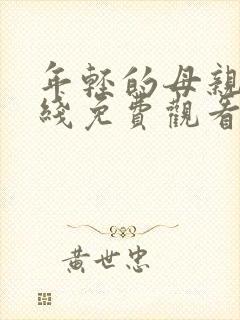 年轻的母親
綫免費觀看
黃世忠